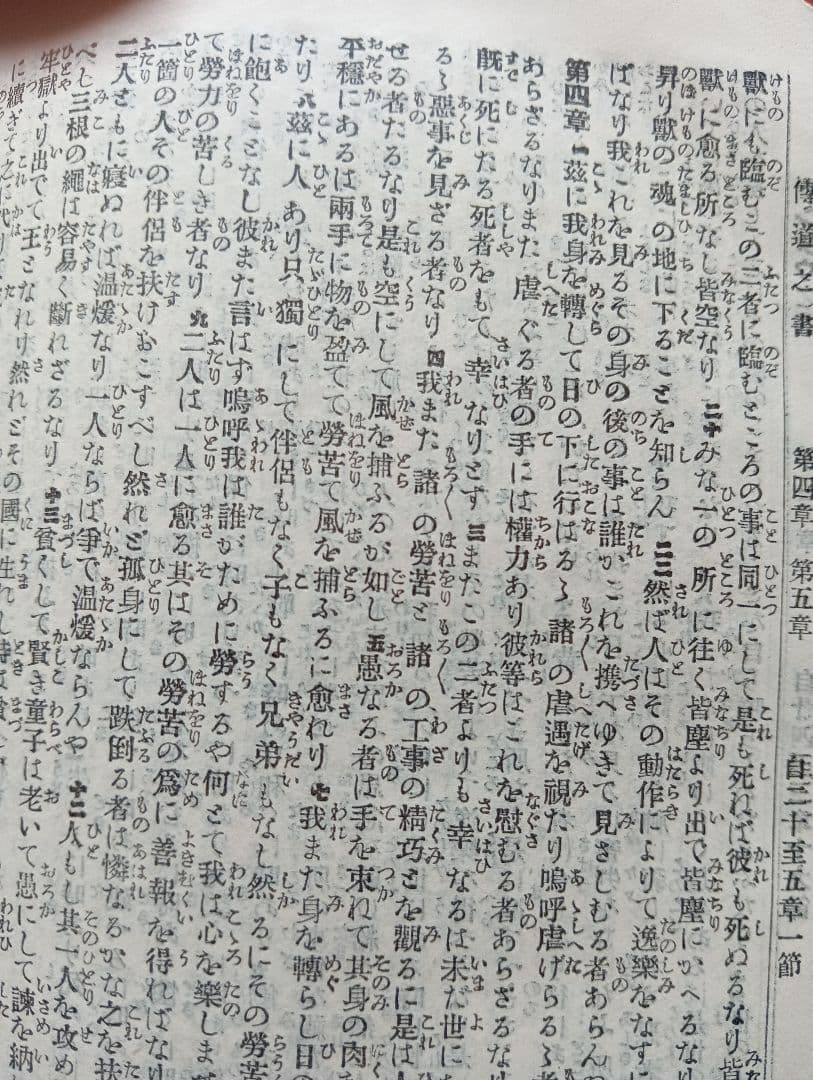 傳道之書 第四章 第五章 自三十至五章一節
獸にも臨むこの二者に臨むところの事は同一にして是も死ば彼も死ぬるなり皆
獸に愈る所なし皆空なり 二十 みな一の所に往く皆塵より出で皆塵にかへるなり
昇り獸の魂の地に下ることを知らん 二二 然ば人はその動作によりて逸樂をなすに
ばなり我これを見るその身の後の事は誰かこれを携へゆきて見さしむる者あらんや
第四章 一 茲に我身を轉して日の下に行はるゝ諸の虐遇を視たり嗚呼虐げらるゝ者
あらざるなりまた虐ぐる者の手には權力あり彼等はこれを慰むる者あらざるなり
既に死にたる死者をもて幸なりとす 三 またこの二者よりも幸なるは未だ世に
るゝ惡事を見ざる者なり 四 我また諸の勞苦と諸の工事の精巧とを觀るに是は人
せる者たるなり是も空にして風を捕ふるが如し 五 愚なる者は手を束ねて其身の肉
平穩にあるは兩手に物を盈てて勞苦て風を捕ふるに愈れり 七 我また身を轉らし日の
たり 八 茲に人あり只獨にして伴侶もなく子もなく兄弟もなし然るにその勞苦
に飽くことなし彼また言はず嗚呼我は誰がために勞するや何とて我は心を樂しま
て勞力の苦しき者なり 九 二人は一人に愈る其はその勞苦の爲に善報を得ればなり
一箇の人その伴侶を扶けおこすべし然れど孤身にして跌倒る者は憐なるかな之を扶
二人ともに寢ぬれば温煖なり一人ならば爭で温煖ならんや 十二 人もし其一人を攻め
べし三根の繩は容易く斷れざるなり 十三 貧くして賢き童子は老いて愚にして諫を納
牢獄より出でて王となれり然れどその國に生れし時は
に續ぎて之に代り